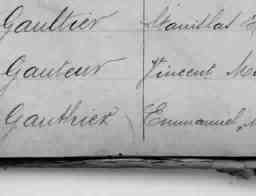 Gaultier Stanislas
Gauteur Vincent M
Gauthier Emmanuel, M